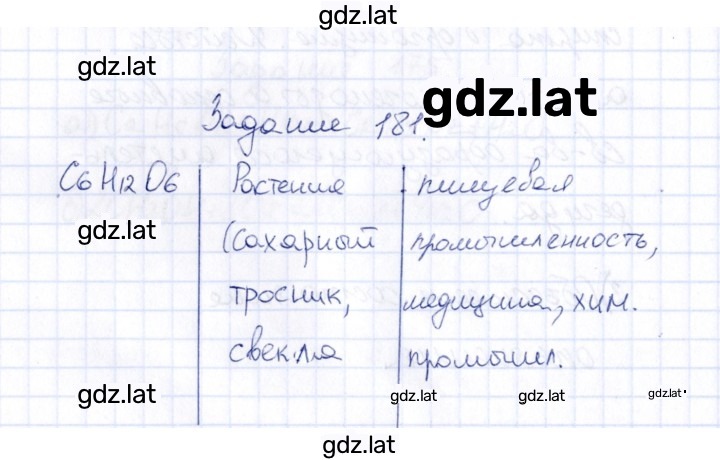 gdz.lat
gdz.lat
gdz.lat
Задание 181.
C6H12O6 | Растения | пищевая
gdz.lat (сахарный | промышленность,
тросник, | медицина, хим.
свекла | промышл.
gdz.lat gdz.lat gdz.lat gdz.lat
gdz.lat